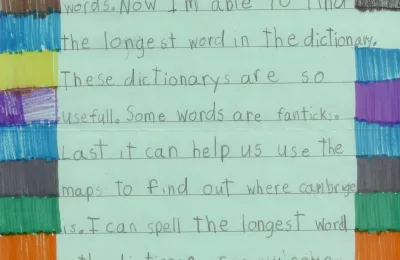 words. Now I'm able to find
the longest word in the dictionary.
These dictionarys are so
usefull. Some words are fantick.
Last it can help us use the
maps to find out where cambrige
is. I can spell the longest word